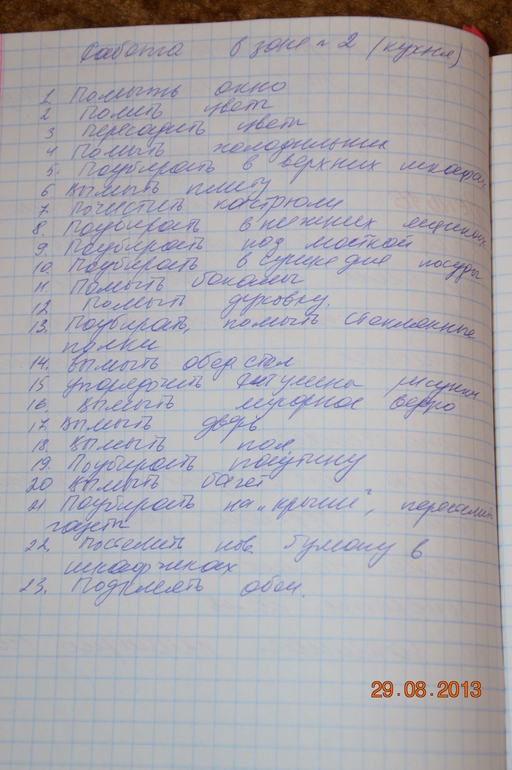 Работа в зоне № 2 (кухня)
1. Помыть окно
2 Полить цветы
3 Пересадить цветы
4 Помыть холодильник
5. Поубирать в верхних шкафах
6 Вымыть плиту
7. Почистить кастрюли
8 Поубирать в нижних ящиках
9. Поубирать под мойкой
10. Поубирать в сушке для посуды
11 Помыть бокалы
12 Помыть духовку
13. Поубирать, помыть стеклянные
полки
14. Вымыть обед стол
15 Упорядочить рисунки
16. Вымыть мусорное ведро
17. Вымыть дверь
18. Вымыть пол
19. Поубирать паутину
20 Вымыть багет
21 Поубирать на „крыше", перестелить
газеты
22. Постелить нов. бумагу в
шкафчиках
23. Подклеить обои.
29.08.2013